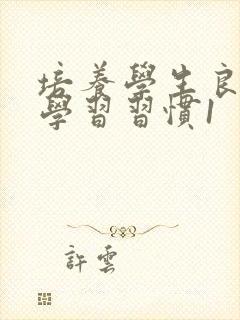 培養學生良
學習習慣1
許雲